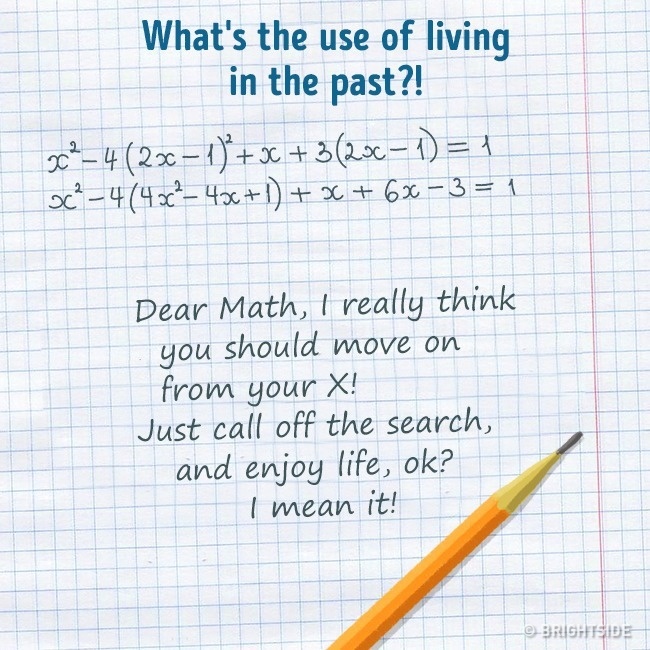 What's the use of living
in the past?!
x² – 4(2x – 1)² + x + 3(2x – 1) = 1
x² – 4(4x² – 4x + 1) + x + 6x – 3 = 1
Dear Math, I really think
you should move on
from your X!
Just call off the search,
and enjoy life, ok?
I mean it!
© BRIGHTSIDE